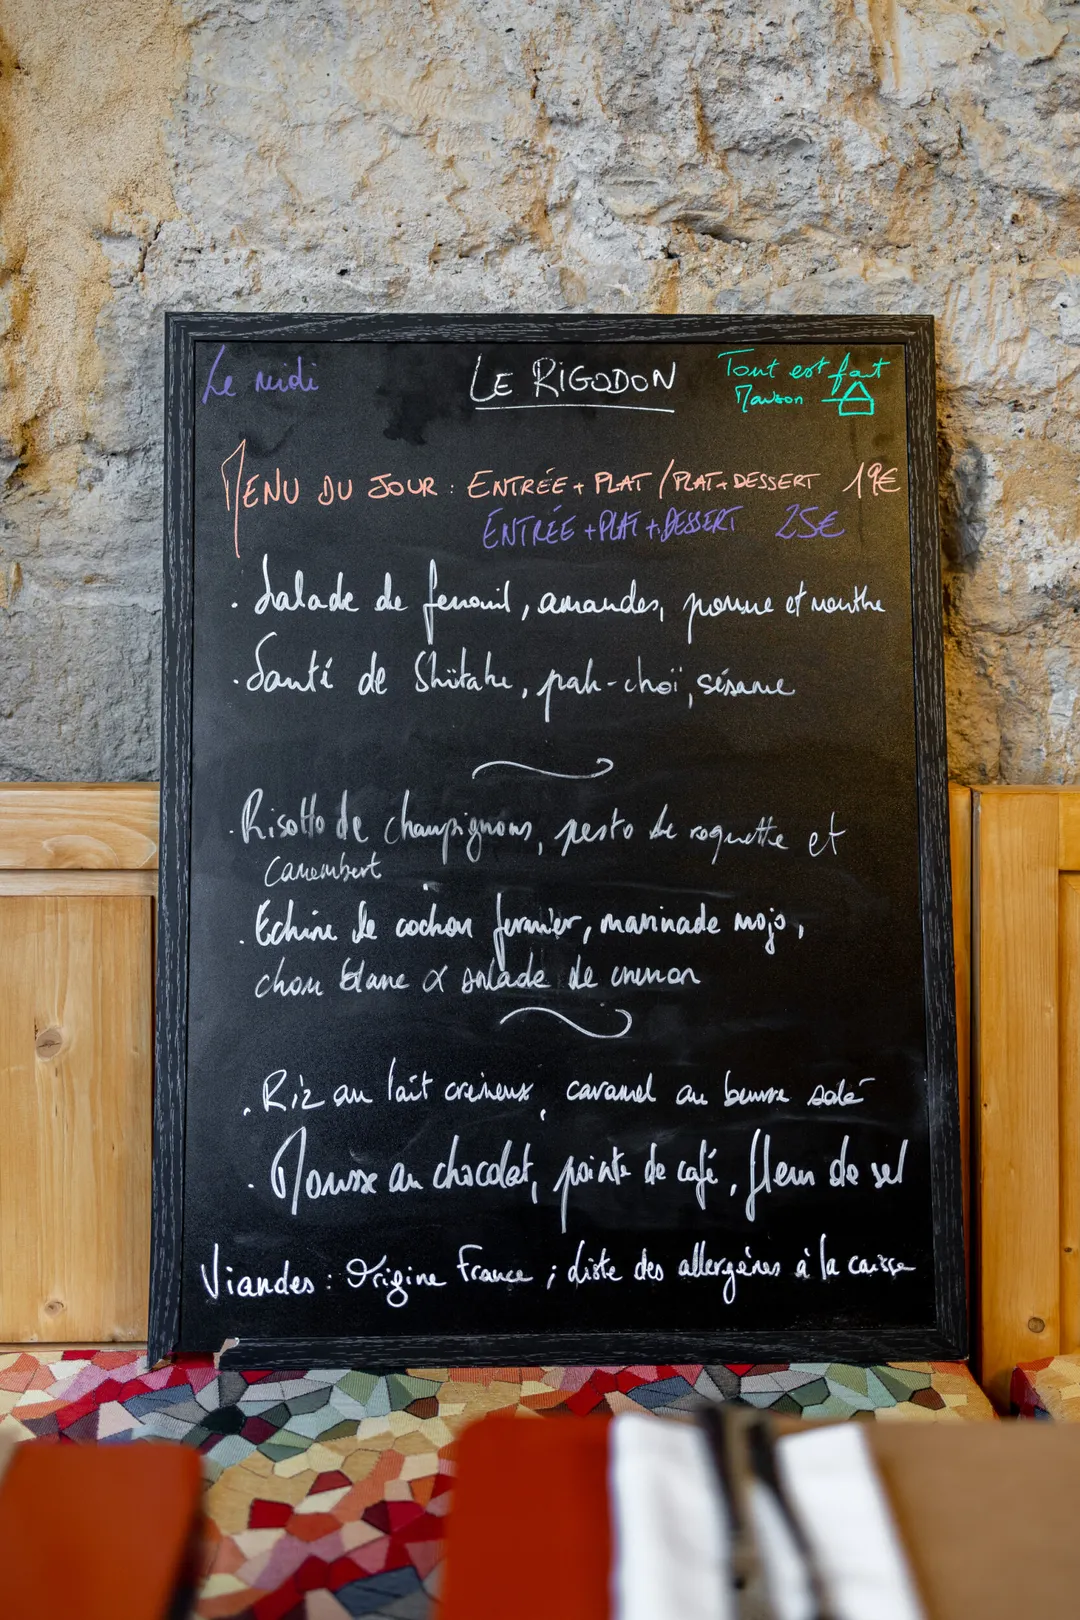 Le midi
LE RIGODON
Tout est fait
Maison
MENU DU JOUR : ENTRÉE + PLAT / PLAT + DESSERT 19€
ENTRÉE + PLAT + DESSERT 25€
. Salade de fenouil, amandes, pomme et menthe
. Sauté de Shiitake, pak-choï, sésame
. Risotto de champignons, pesto de roquette et
Camembert
. Echine de cochon fermier, marinade mojo,
chou blanc & salade de
. Riz au lait crémeux, caramel au beurre salé
. Mousse au chocolat, pointe de café, fleur de sel
Viandes : Origine France ; liste des allergènes à la caisse